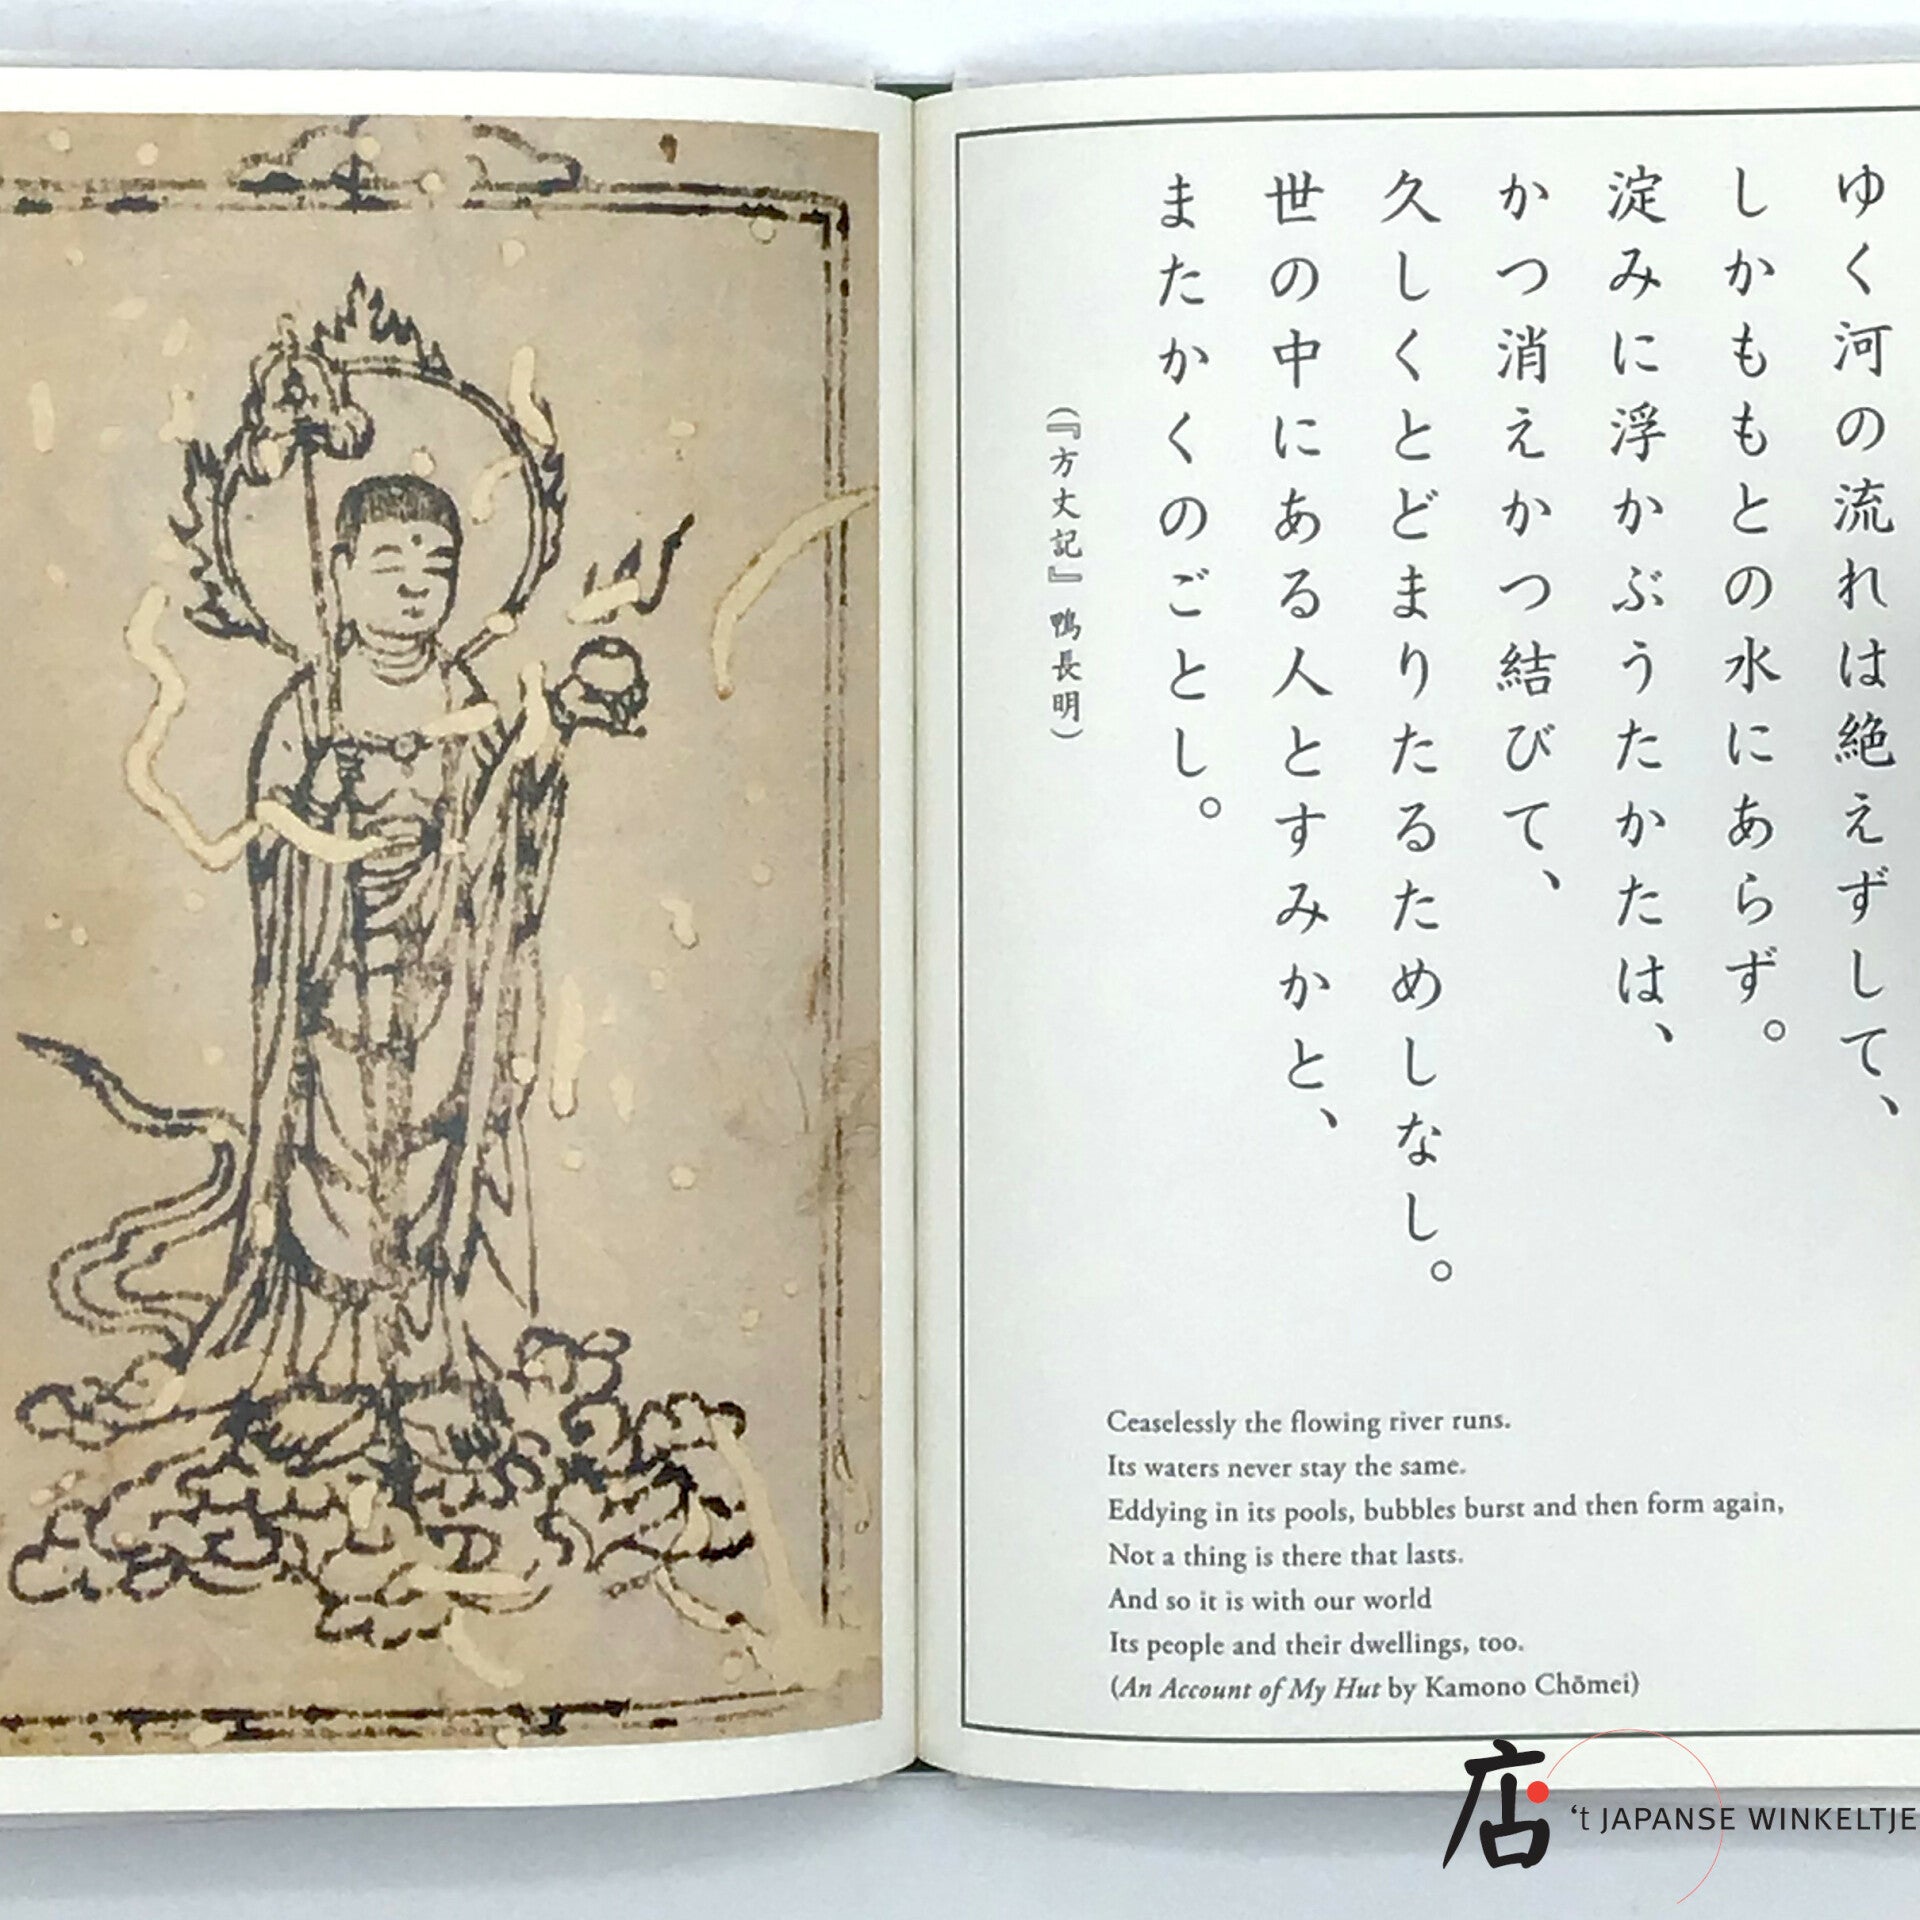 ゆく河の流れは絶えずして、
しかももとの水にあらず。
淀みに浮かぶうたかたは、
かつ消えかつ結びて、
久しくとどまりたるためしなし。
世の中にある人とすみかと、
またかくのごとし。
（『方丈記』鴨長明）
Ceaselessly the flowing river runs.
Its waters never stay the same.
Eddying in its pools, bubbles burst and then form again,
Not a thing is there that lasts.
And so it is with our world
Its people and their dwellings, too.
(An Account of My Hut by Kamono Chōmei)
店 ‘t JAPANSE WINKELTJE